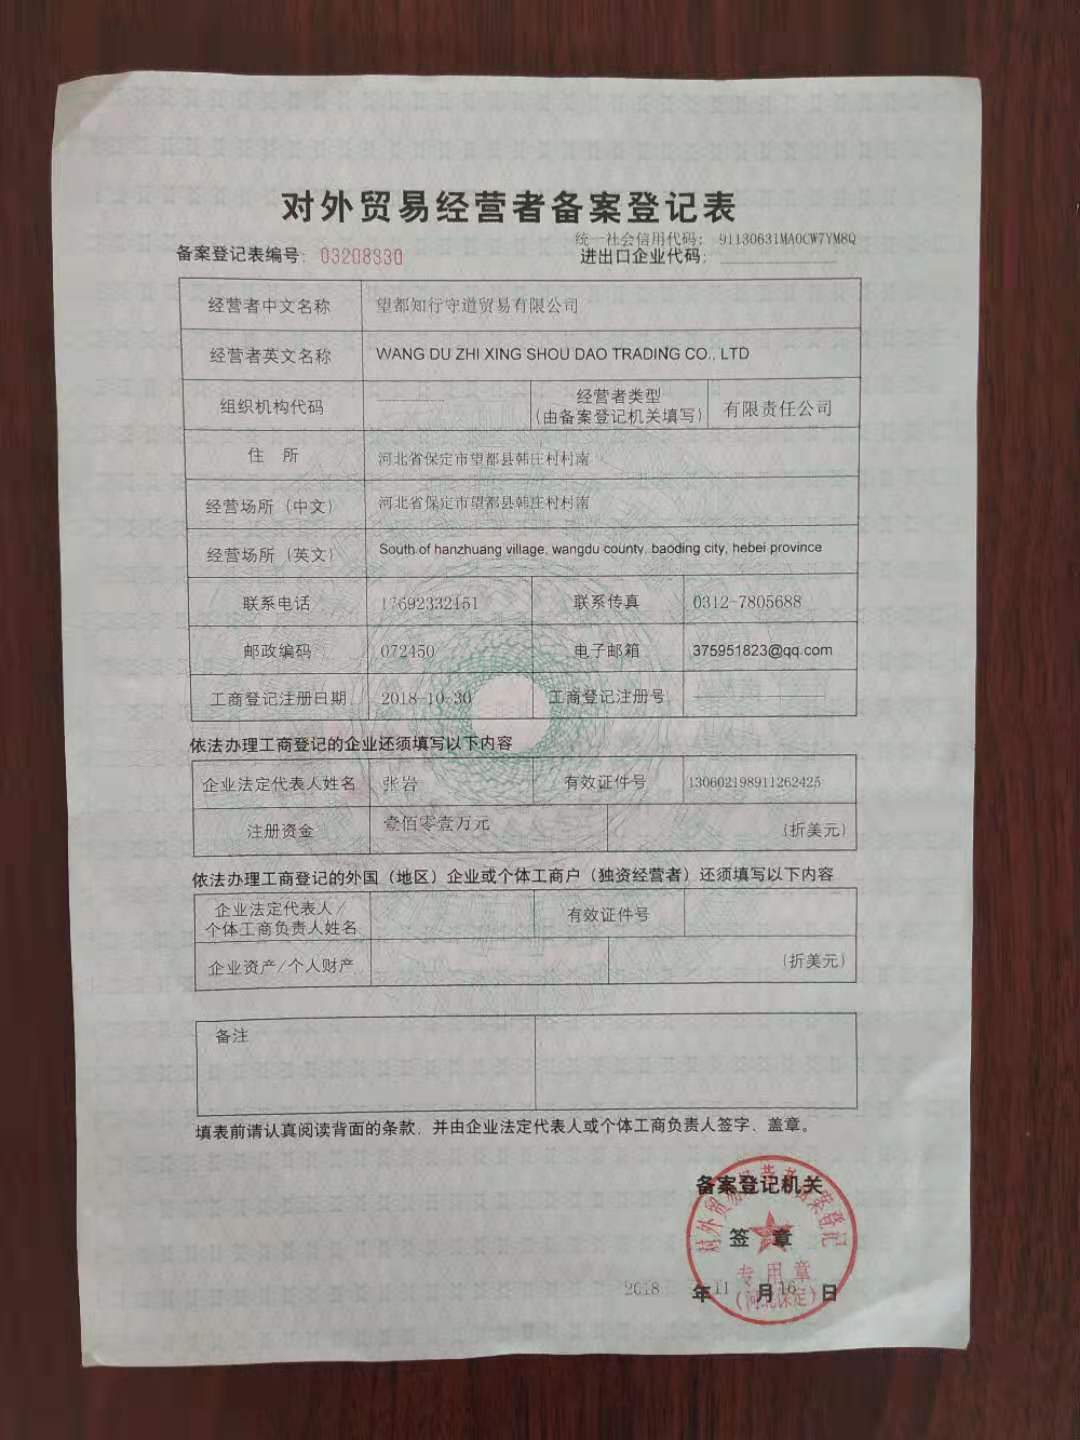 对外贸易经营者备案登记表
统一社会信用代码: 91130631MA0CW7YM8Q
备案登记表编号: 03208830 进出口企业代码:
经营者中文名称 望都知行守道贸易有限公司
经营者英文名称 WANG DU ZHI XING SHOU DAO TRADING CO., LTD
组织机构代码 经营者类型 (由备案登记机关填写) 有限责任公司
住 所 河北省保定市望都县韩庄村村南
经营场所 (中文) 河北省保定市望都县韩庄村村南
经营场所 (英文) South of hanzhuang village, wangdu county, baoding city, hebei province
联系电话 17692332151 联系传真 0312-7805688
邮政编码 072450 电子邮箱 375951823@qq.com
工商登记注册日期 2018-10-30 工商登记注册号
依法办理工商登记的企业还须填写以下内容
企业法定代表人姓名 张岩 有效证件号 130602198911262425
注册资金 壹佰零壹万元 (折美元)
依法办理工商登记的外国（地区）企业或个体工商户（独资经营者）还须填写以下内容
企业法定代表人/ 个体工商负责人姓名 有效证件号
企业资产/个人财产 (折美元)
备注
填表前请认真阅读背面的条款, 并由企业法定代表人或个体工商负责人签字、盖章。
备案登记机关
签 章
对外贸易经营者备案登记
专用章
(河北保定)
2018 年 11 月 16 日